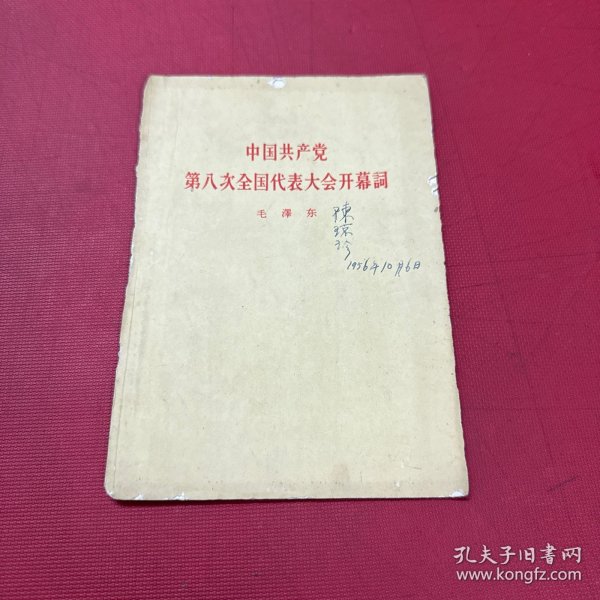 中国共产党
第八次全国代表大会开幕詞
毛澤东
陳琼珍
1956年10月6日
孔夫子旧书网
www.kongfz.com